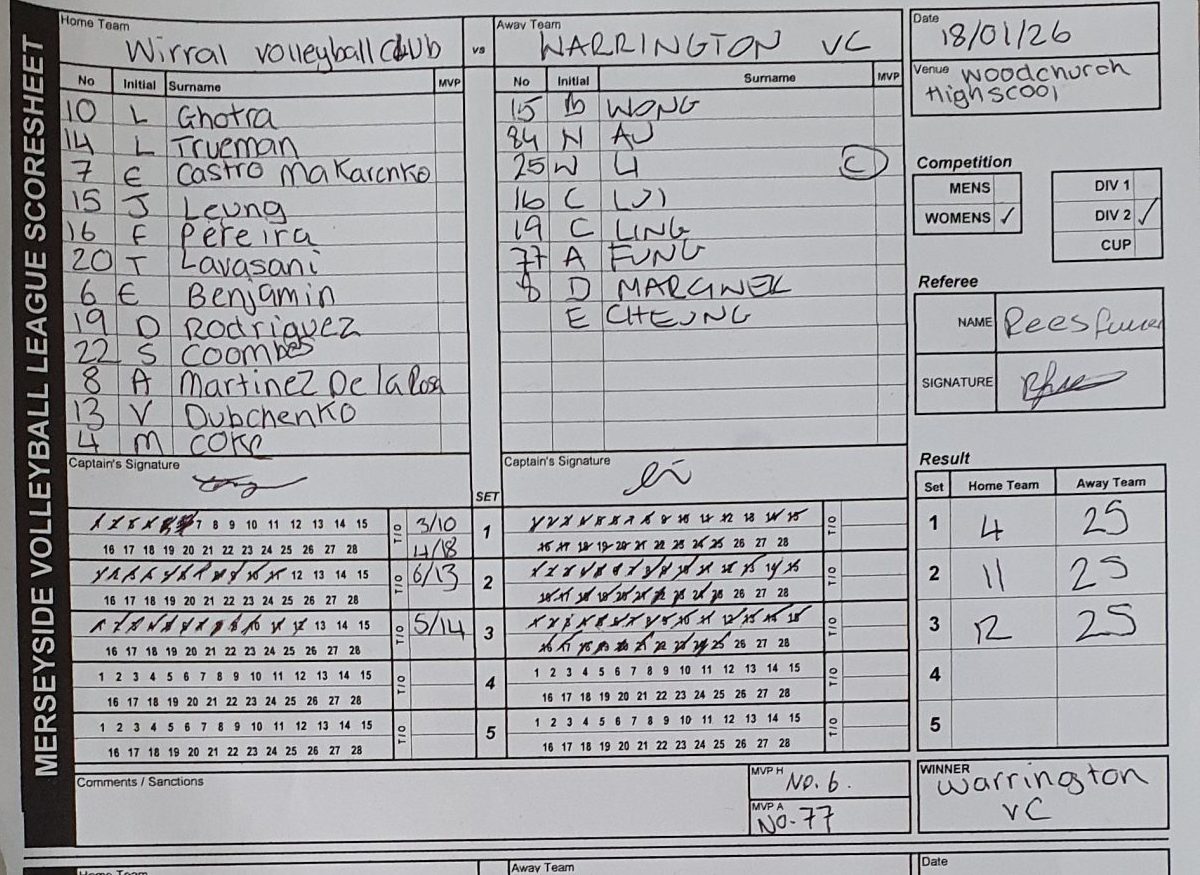 MERSEYSIDE VOLLEYBALL LEAGUE SCORESHEET
Home Team
Wirral Volleyball Club
vs
Away Team
WARRINGTON VC
Date
18/01/26
Venue Woodchurch
High Scool
No Initial Surname MVP
10 L Ghotra
14 L Trueman
7 E Castro Makarenko
15 J Leung
16 F Pereira
20 T Lavasani
6 E Benjamin
19 D Rodriguez
22 S Coombes
8 A Martinez De la Rosa
13 V Dubchenko
4 M
No Initial Surname MVP
15 B WONG
84 N AU
25 W LI C
16 C LUI
19 C LING
77 A FUNG
8 D
E CHEUNG
Competition
MENS
WOMENS ✓
DIV 1
DIV 2 ✓
CUP
Referee
NAME Rees
SIGNATURE
Captain's Signature
SET
Captain's Signature
1 2 3 4 5 6 7 8 9 10 11 12 13 14 15
16 17 18 19 20 21 22 23 24 25 26 27 28
T/O 3/10
4/18
1
1 2 3 4 5 6 7 8 9 10 11 12 13 14 15
16 17 18 19 20 21 22 23 24 25 26 27 28
T/O
1 2 3 4 5 6 7 8 9 10 11 12 13 14 15
16 17 18 19 20 21 22 23 24 25 26 27 28
T/O 6/13
2
1 2 3 4 5 6 7 8 9 10 11 12 13 14 15
16 17 18 19 20 21 22 23 24 25 26 27 28
T/O
1 2 3 4 5 6 7 8 9 10 11 12 13 14 15
16 17 18 19 20 21 22 23 24 25 26 27 28
T/O 5/14
3
1 2 3 4 5 6 7 8 9 10 11 12 13 14 15
16 17 18 19 20 21 22 23 24 25 26 27 28
T/O
1 2 3 4 5 6 7 8 9 10 11 12 13 14 15
16 17 18 19 20 21 22 23 24 25 26 27 28
T/O
4
1 2 3 4 5 6 7 8 9 10 11 12 13 14 15
16 17 18 19 20 21 22 23 24 25 26 27 28
T/O
1 2 3 4 5 6 7 8 9 10 11 12 13 14 15
16 17 18 19 20 21 22 23 24 25 26 27 28
T/O
5
1 2 3 4 5 6 7 8 9 10 11 12 13 14 15
16 17 18 19 20 21 22 23 24 25 26 27 28
T/O
Result
Set Home Team Away Team
1 4 25
2 11 25
3 12 25
4
5
Comments / Sanctions
MVP H
No. 6.
MVP A
No. 77
WINNER
Warrington
VC
Home Team
Away Team
Date